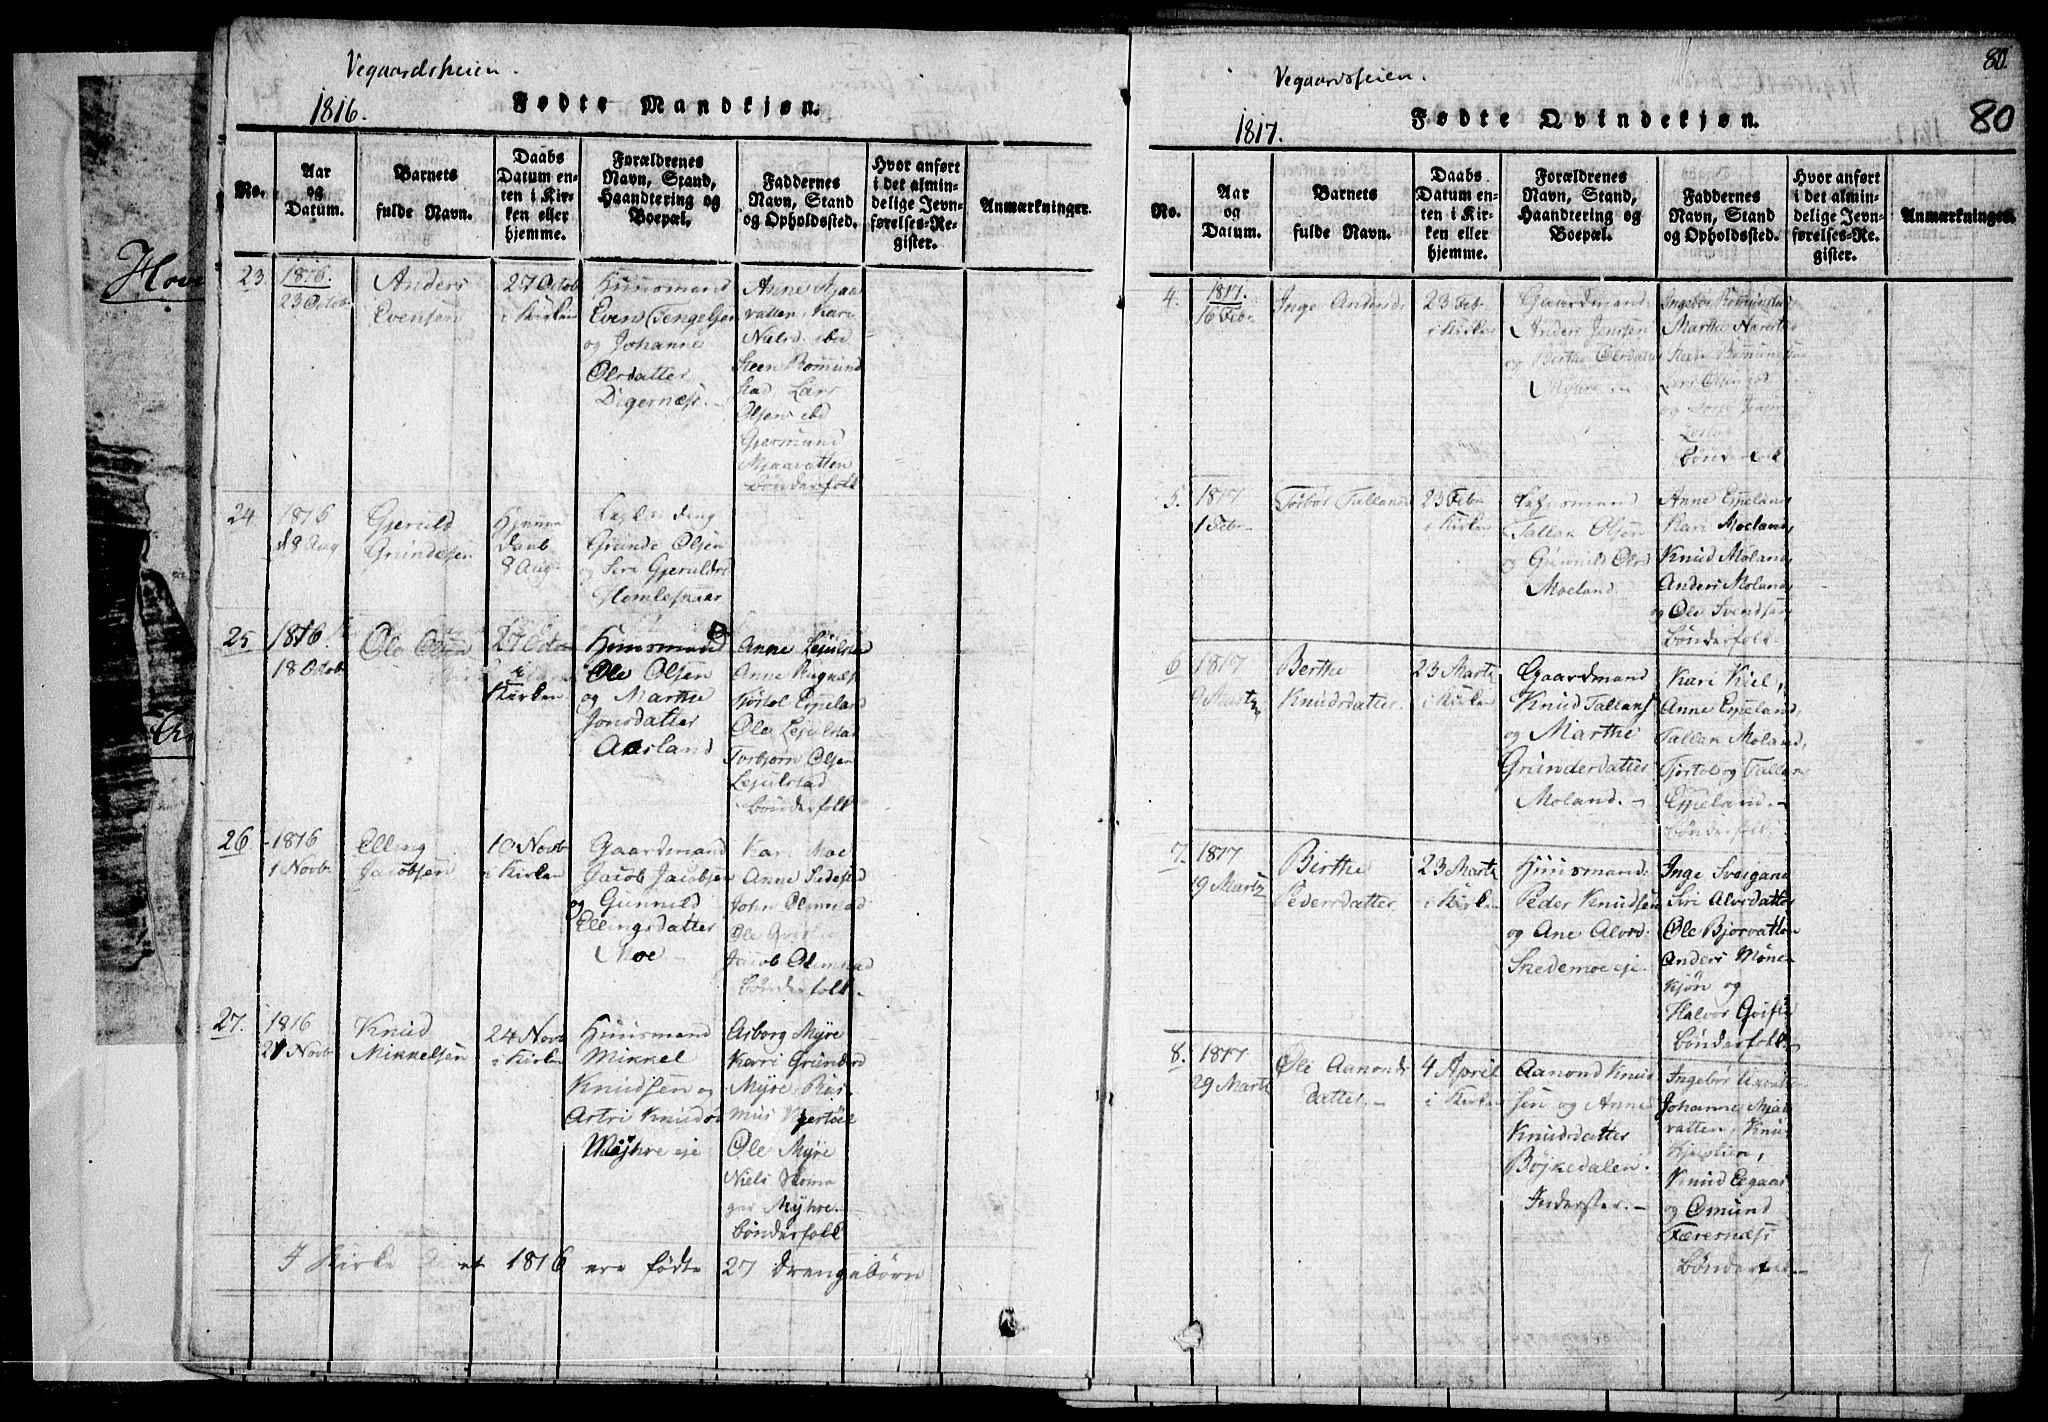 Vegaardsheien.
1816. Fødte Mandkjøn.
No.
Aar
og
Datum.
Barnets
fulde Navn.
Daabs
Datum en-
ten i Kir-
ken eller
hjemme.
Forældrenes
Navn, Stand,
Haandtering og
Boepæl.
Faddernes
Navn, Stand
og Opholdssted.
Hvor anført
i det almin-
delige Jevn-
førelses-Re-
gister.
Anmærkninger.
23.
1816.
23 Octob
Anders
Evensen
27 Octob
i Kirken
Huusmand
Even Tengelsen
og Johanne
Olsdatter
Digernæs. -
Anne Mjaa
vatten, Kari
Nielsd. ibd
Steen Romund
stad Lars
Olsen ibd
Gjermund
Mjaavatten
Bønderfolk
24
1816
d 8 Aug
Gjeruld
Grundesen
Hjemme
daab
8 Aug.
Grunde Olsen
og Siri Gjerulds
Homlesmaar
25
1816
18 Octob
Ole Olsen
27 Octob
i
Kirken
Huusmand
Ole Olsen
og Marthe
Jonsdatter
Aasland
Anne Lejulstad
Anne
Tjøstol Eppeland
Ole Lejulstad
Torbjørn Olsen
Lejulstad
Bønderfolk
26
1816
1 Novb
Elling
Jacobsen
10 Novb
i Kirken
Gaardmand
Jacob Jacobsen
og Gunnild
Ellingsdatter
Moe -
Kari Moe
Anne
John Olimstad
Ole
Jacob Olimstad
Bønderfolk
27.
1816
21 Novb
Knud
Mikkelsen
24 Novb
i Kirken
Huusmand
Mikkel
Knudsen og
Astri Knudsd
Mÿhre eje
Asborg Mÿre
Kari Grundesd
Mÿre Ras-
mus
Ole Mÿre
Niels
Mÿhre. -
Bønderfolk
I Kirke Aaret 1816 ere fødte 27 drengebørn
80.
80
Vegaardsheien.
1817. Fødte Qvindekjøn.
No.
Aar
og
Datum.
Barnets
fulde Navn.
Daabs
Datum en-
ten i Kir-
ken eller
hjemme.
Forældrenes
Navn, Stand,
Haandtering og
Boepæl.
Faddernes
Navn, Stand
og Opholdssted.
Hvor anført
i det almin-
delige Jevn-
førelses-Re-
gister.
Anmærkninger.
4.
1817.
16 Febr.
Inge Andersd
23 Febr
i Kirken
Gaardmand
Anders Jensen
og Berthe Olsdatter
Moure -
Ingebor Romunstad
Marthe
Steen Romunstad
Lars Olsen ibd
og
Bønderfolk
5.
1817
1 Febr
Torbor Tallansd
23 Febr
i Kirken
Tallan Olsen
og Gunnild Olsd
Moeland
Anne Eppeland
Kari Moeland
Knud Moland
Anders Moland
og Ole Svendsen
Bønderfolk
6
1817
9 Martz
Berthe
Knudsdatter
23 Martz
i Kirken
Gaardmand
Knud Tallans
og Marthe
Grundesdatter
Moland. -
Kari Kiel,
Anne Eppeland,
Tallan Moland,
Tjøstol og Tallan
Eppeland. -
Bønderfolk.
7.
1817
19 Martz
Berthe
Pedersdatter
23 Martz
i Kirken
Huusmand
Peder Knudsen
og Ane Alvord.
Skedemoe eje.
Inge Sveigane
Siri Alvordatter
Ole Bjorvatten
Anders Møne-
kjøn og
Halvor
Bønderfolk. -
8.
1817
29 Martz
Ole Aanonds
datter. -
4 April
i Kirken
Aanond Knud
sen og Anne
Knudsdatter
Bøjkedalen.
Inderster. -
Ingebor
Johanne Mjaa
vatten, Knud
Hjestlien,
Knud Eegaas
og Osmund
Færernæs
Bønderfolk -